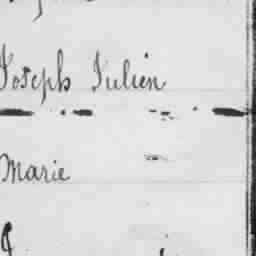 Joseph Julien
Marie